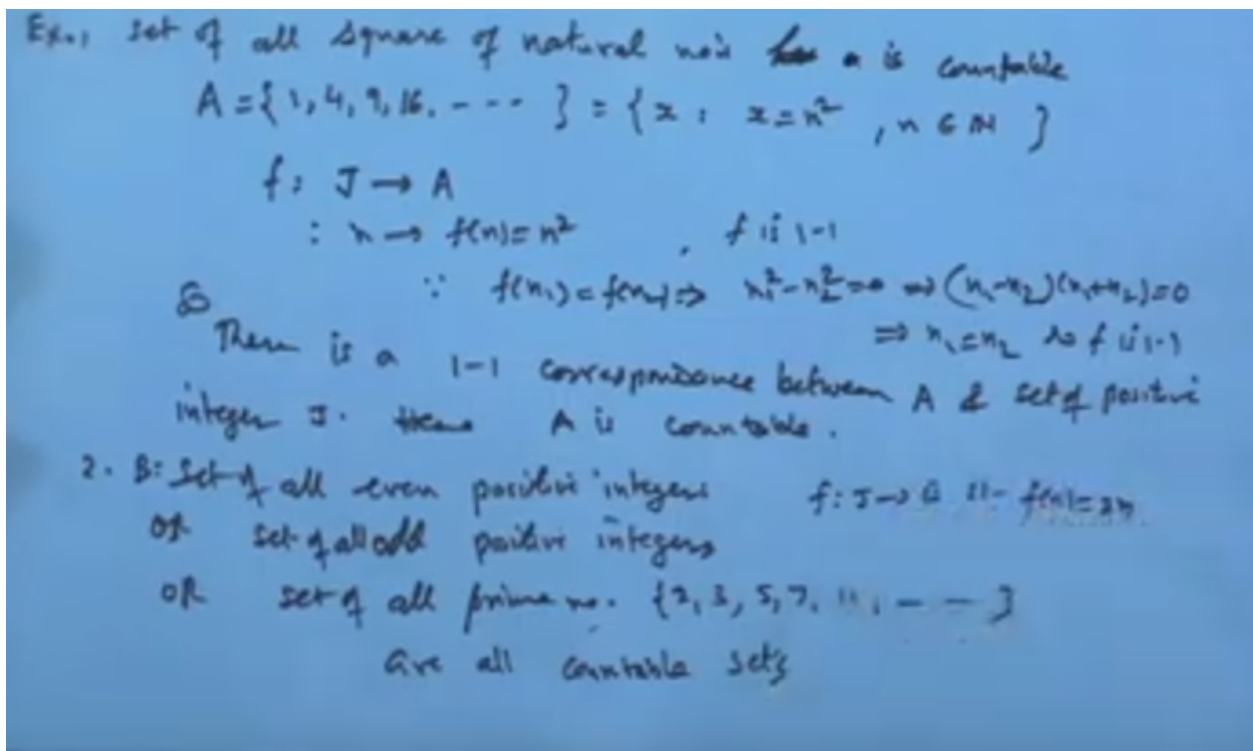 Ex. 1 set of all square of natural no's is countable
A = { 1, 4, 9, 16, - - - - } = { x : x = n² , n ∈ N }
f : J → A
: n → f(n) = n² , f is 1-1
∵ f(n₁) = f(n₂) ⇒ n₁² - n₂² = 0 ⇒ (n₁-n₂)(n₁+n₂) = 0
⇒ n₁ = n₂ so f is 1-1
There is a 1-1 correspondence between A & set of positive
integer J. Hence A is countable.
2. B: Set of all even positive integers f: J → f(n) = 2n
OR set of all odd positive integers
OR set of all prime no. {2, 3, 5, 7, 11, - - }
are all countable sets